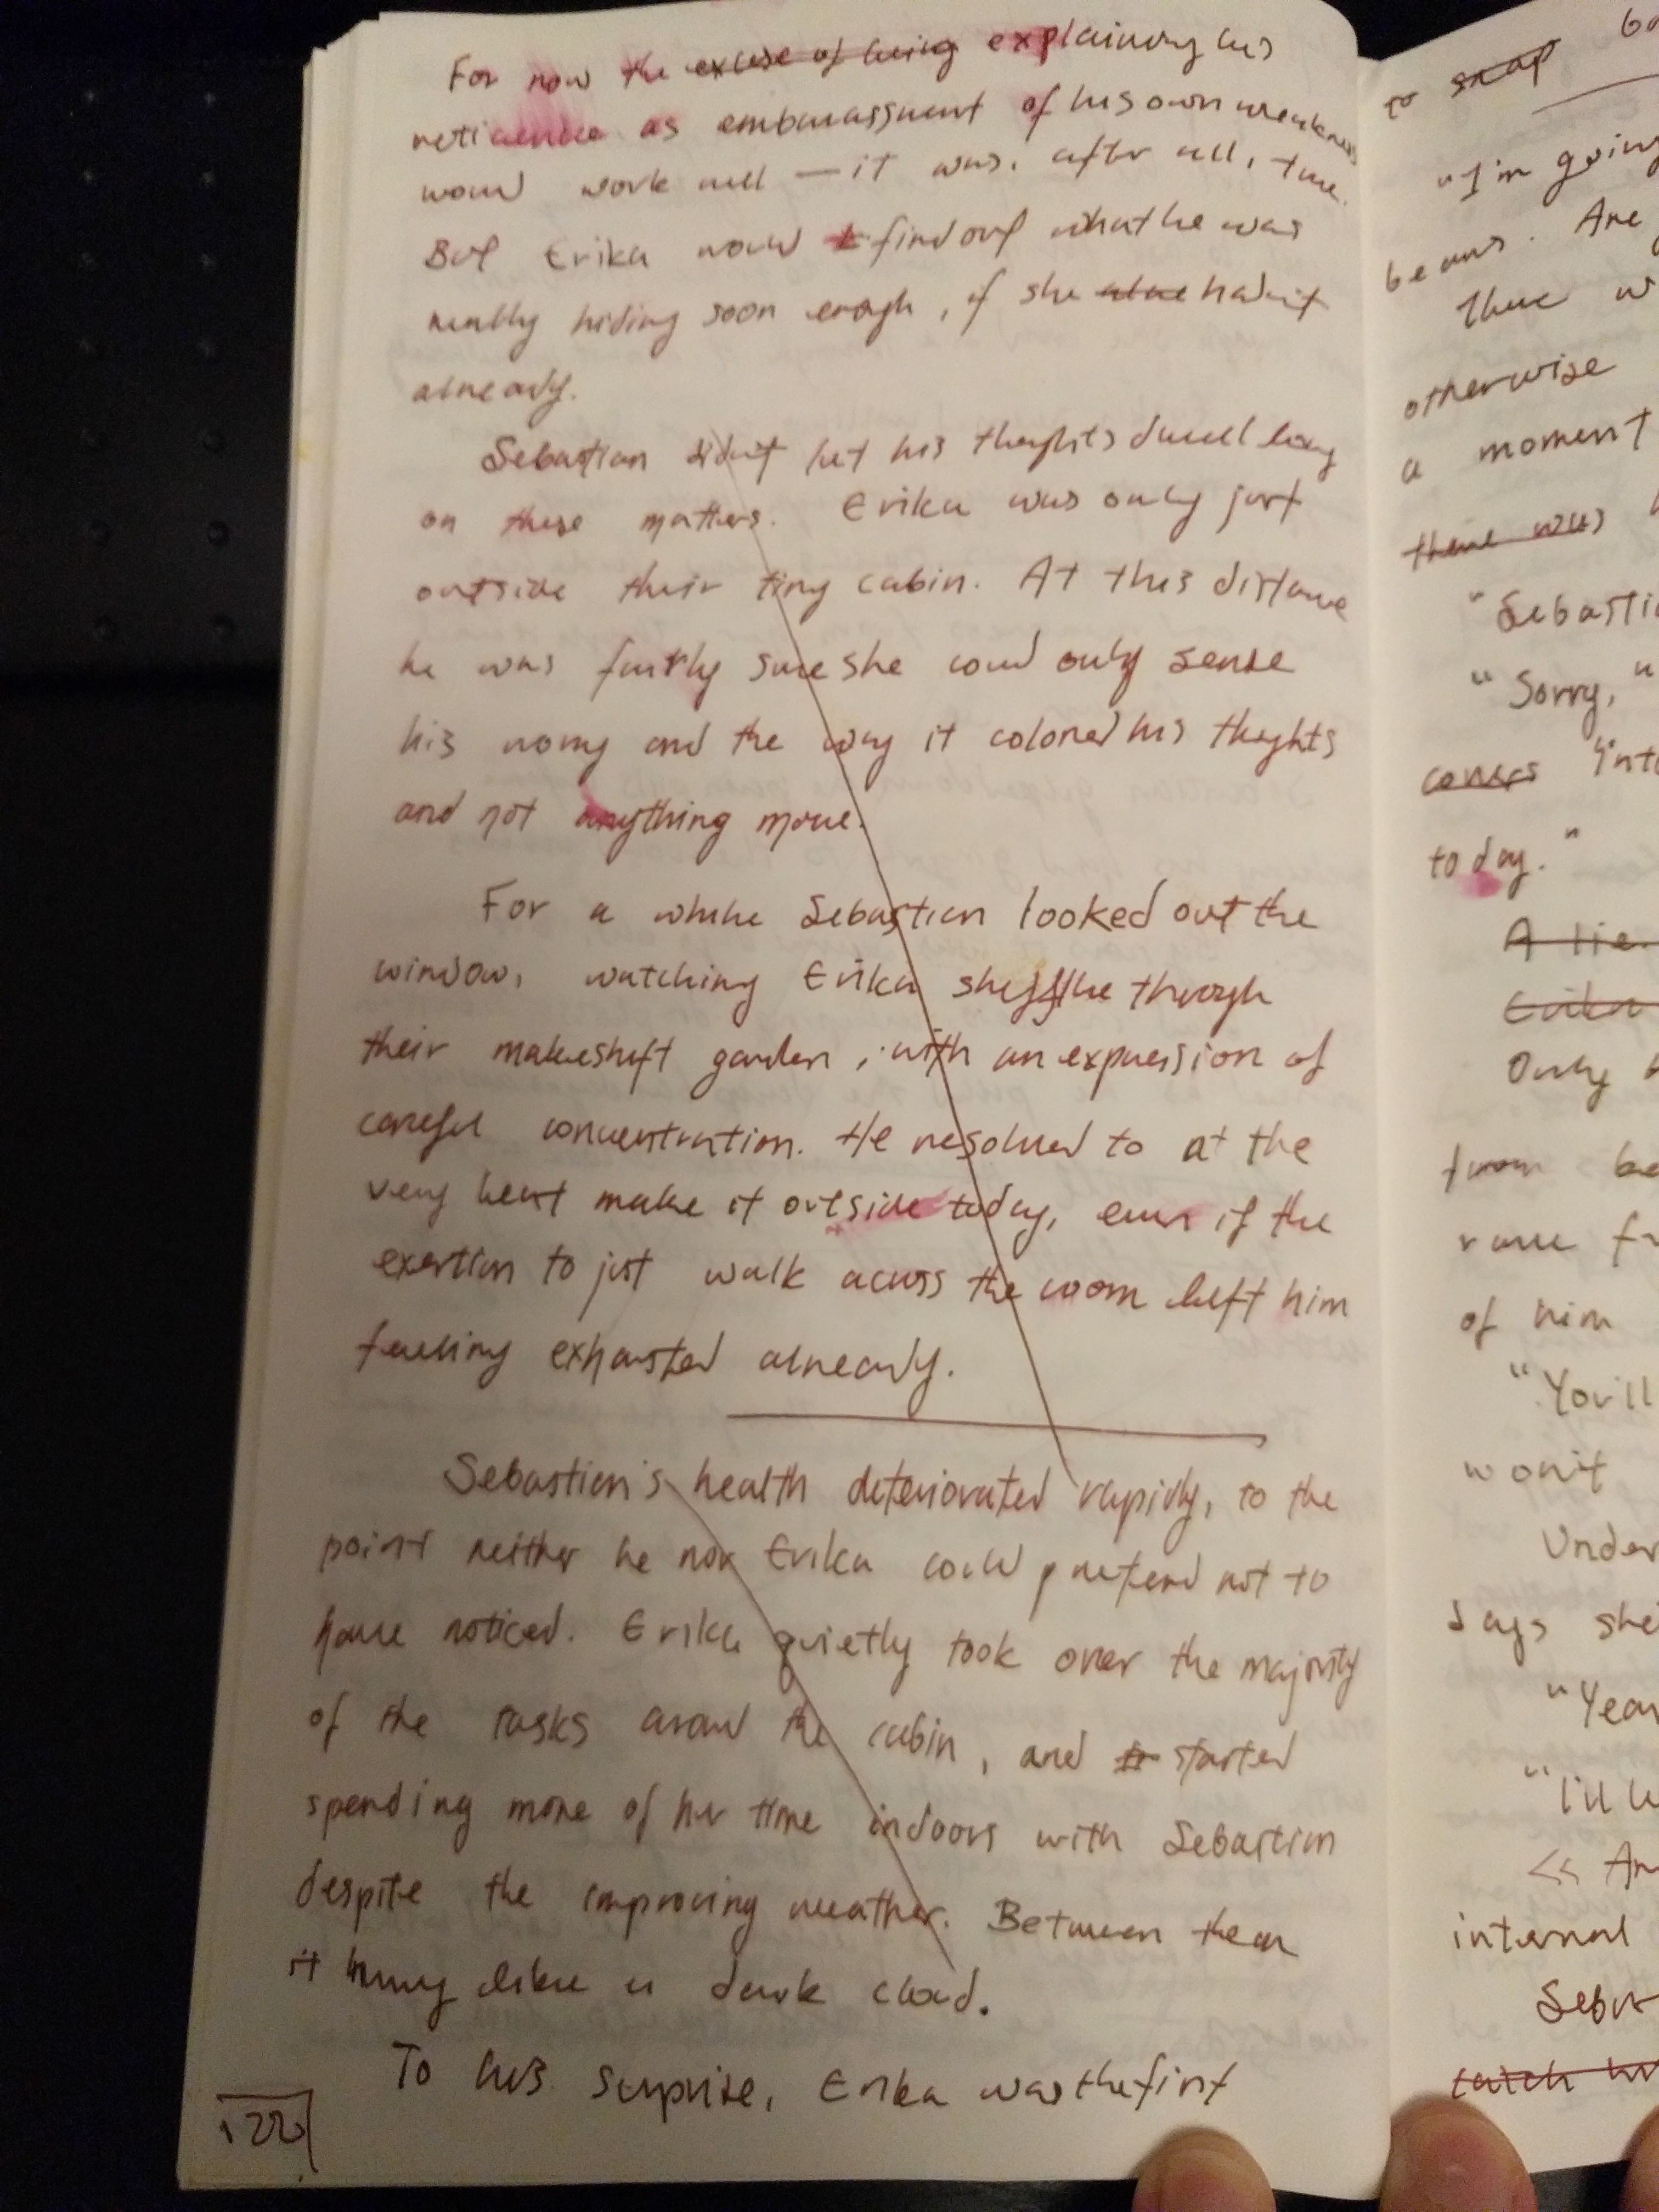 For now the excuse of being explaining his
reticence as embarrassment of his own weakness
would work well — it was, after all, true.
But Erika would find out what he was
really hiding soon enough, if she hadn't
already.
Sebastian didn't let his thoughts dwell long
on these matters. Erika was only just
outside their tiny cabin. At this distance
he was fairly sure she could only sense
his worry and the way it colored his thoughts
and not anything more.
For a while Sebastian looked out the
window, watching Erika shuffle through
their makeshift garden, with an expression of
careful concentration. He resolved to at the
very least make it outside today, even if the
exertion to just walk across the room left him
feeling exhausted already.
Sebastian's health deteriorated rapidly, to the
point neither he nor Erika could pretend not to
have noticed. Erika quietly took over the majority
of the tasks around the cabin, and started
spending more of her time indoors with Sebastian
despite the improving weather. Between them
it hung like a dark cloud.
To his surprise, Erika was the first
122
to snap
"I'm going
beans. Are
There w
otherwise
a moment
there was
"Sebasti
"Sorry,"
"into
today."
A lie.
Erika
Only
from be
of him
"You'll
won't
Under
days she
"Year
"I'll
internal
Sebas